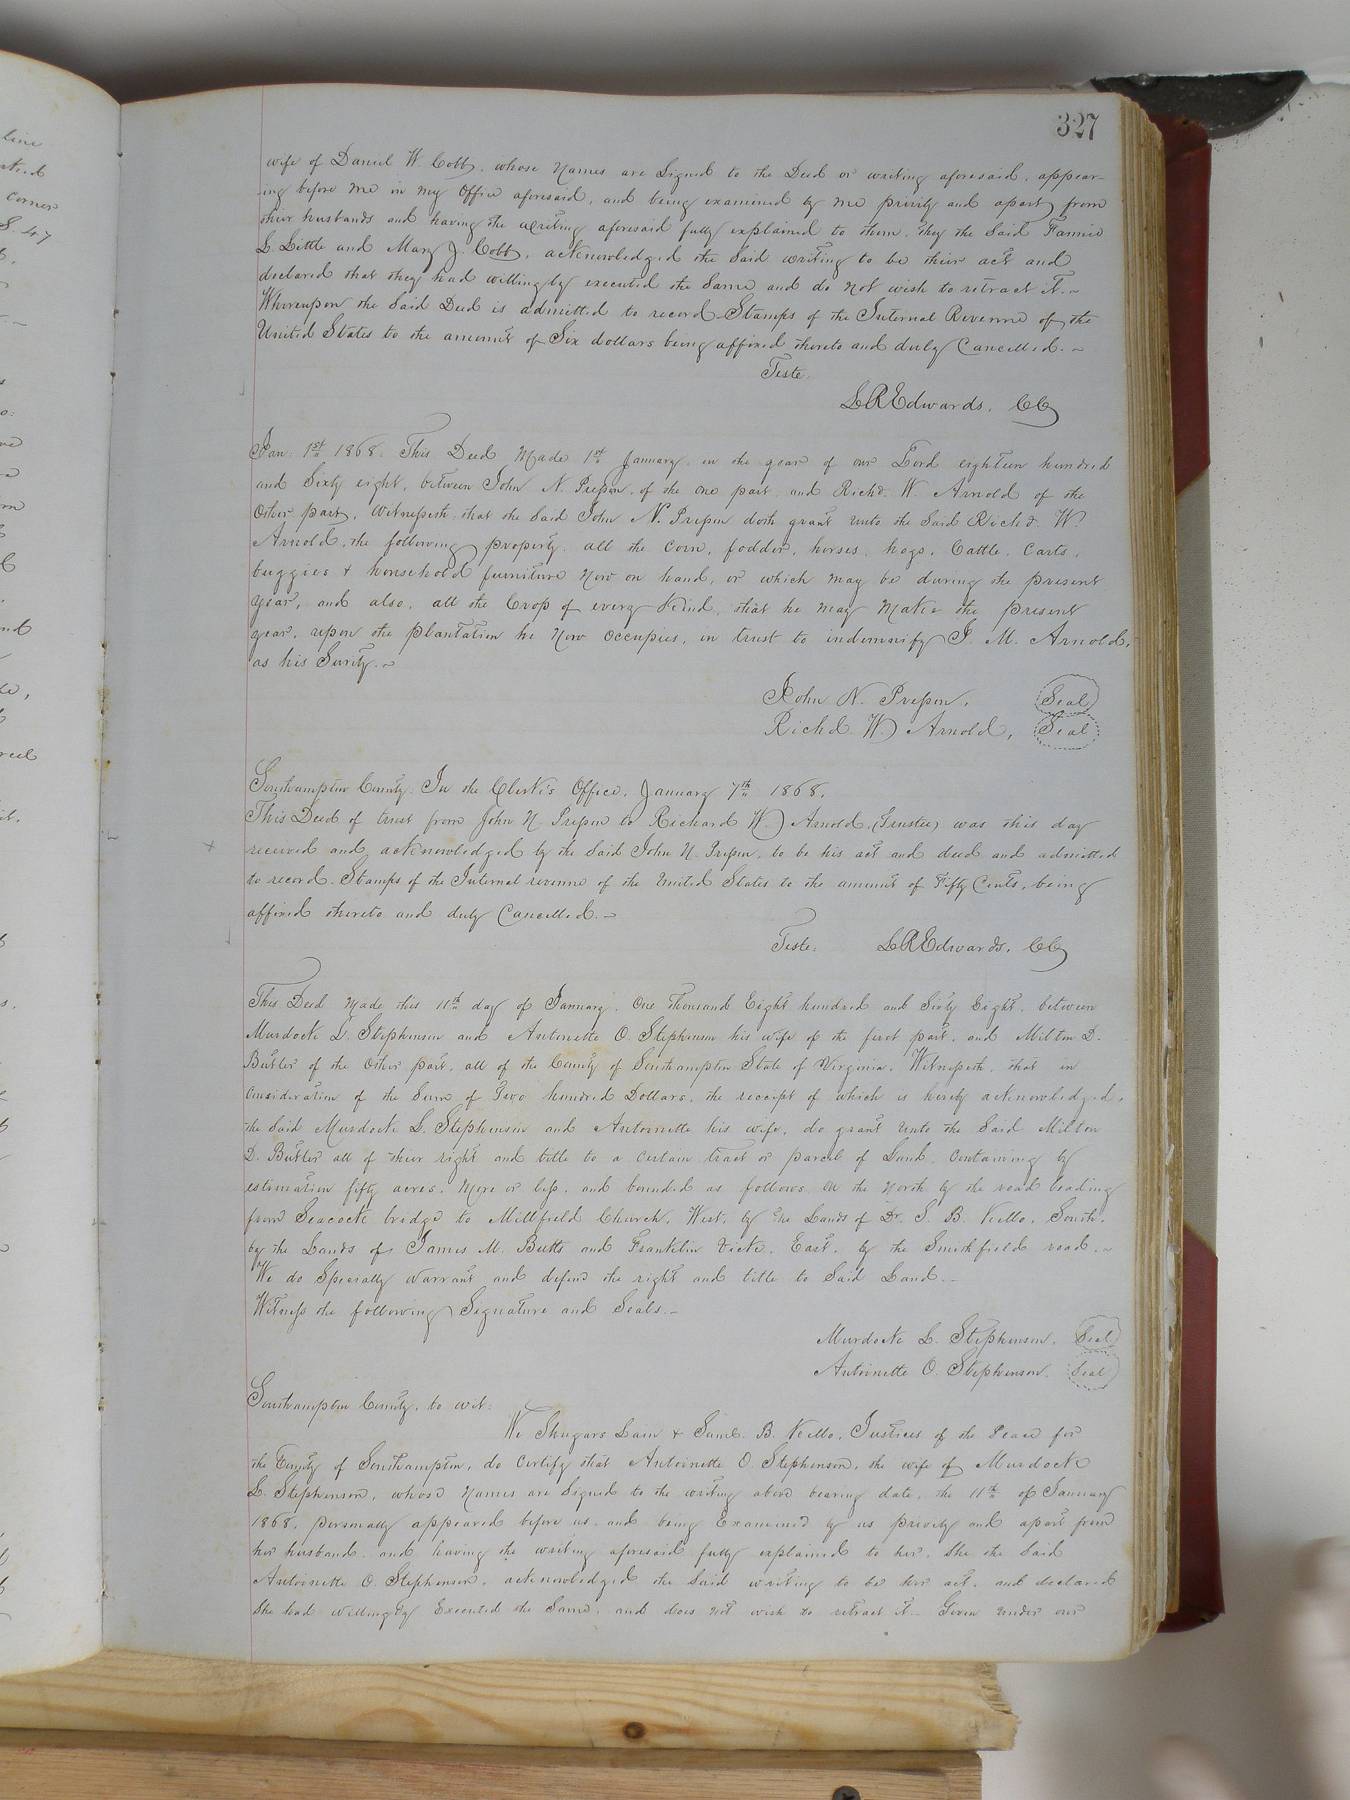 327
wife of Daniel W. Cobb, whose Names are Signed to the Deed or writing aforesaid, appear-
ing before me in my Office aforesaid, and being examined by me privily and apart from
their husbands and having the writing aforesaid fully explained to them, they the Said Fannie
L. Little and Mary J. Cobb, acknowledged the Said writing to be their act and
declared that they had willingly executed the Same and do not wish to retract it.~
Whereupon the Said Deed is admitted to record. Stamps of the Internal Revenue of the
United States to the amount of Six dollars being affixed thereto and duly Cancelled.~
Teste.
L R Edwards, CC
Jan: 1st 1868. This Deed Made 1st January, in the year of our Lord eighteen hundred
and Sixty eight, between John N. Presson, of the one part, and Richd. W. Arnold of the
Other part, Witnesseth: that the Said John N. Presson doth grant unto the Said Richd. W.
Arnold, the following property, all the corn, fodder, horses, hogs, Cattle, Carts,
buggies & household furniture Now on hand, or which may be during the present
Year, and also, all the Crop of every Kind, that he may Make the present
year, upon the plantation he Now Occupies, in trust to indemnify J. M. Arnold,
as his Surity.~
John N. Presson, Seal
Richd. W. Arnold, Seal
Southampton County: In the Clerk's Office, January 7th 1868.
This Deed of trust from John N Presson to Richard W. Arnold, (Trustee) was this day
received and acknowledged by the Said John N. Presson, to be his act and deed and admitted
to record. Stamps of the Internal revenue of the United States to the amount of Fifty Cents, being
affixed thereto and duly Cancelled.~
Teste: L R Edwards, CC
This Deed Made this 11th day of January, One Thousand Eight hundred and Sixty Eight, between
Murdock L. Stephenson and Antoinette O. Stephenson his wife of the first part, and Milton D.
Butler of the Other part, all of the County of Southampton State of Virginia, Witnesseth, that in
Consideration of the Sum of Two hundred Dollars, the receipt of which is hereby acknowledged,
the Said Murdock L. Stephenson and Antoinette his wife, do grant unto the Said Milton
D. Butler all of their right and title to a Certain tract or parcel of Land, Containing by
estimation fifty acres, More or less, and bounded as follows, On the North by the road leading
from Seacock bridge to Millfield Church, West, by the Lands of Dr. S. B. Kello, South,
by the Lands of James M. Butts and Franklin Vick, East, by the Smithfield road.~
We do Specially warrant and defend the right and title to Said Land.~
Witness the following Signature and Seals.~
Murdock L. Stephenson, Seal
Antoinette O. Stephenson, Seal
Southampton County, to wit:
We Shugars Lain & Saml. B. Kello, Justices of the Peace for
the County of Southampton, do Certify that Antoinette O. Stephenson, the wife of Murdock
L. Stephenson, whose Names are Signed to the writing above bearing date, the 11th of January
1868, personally appeared before us, and being Examined by us privily and apart from
her husband, and having the writing aforesaid fully explained to her, She the Said
Antoinette O. Stephenson, acknowledged the Said writing to be her act, and declared
She had willingly Executed the Same, and does Not wish to retract it.~ Given under our